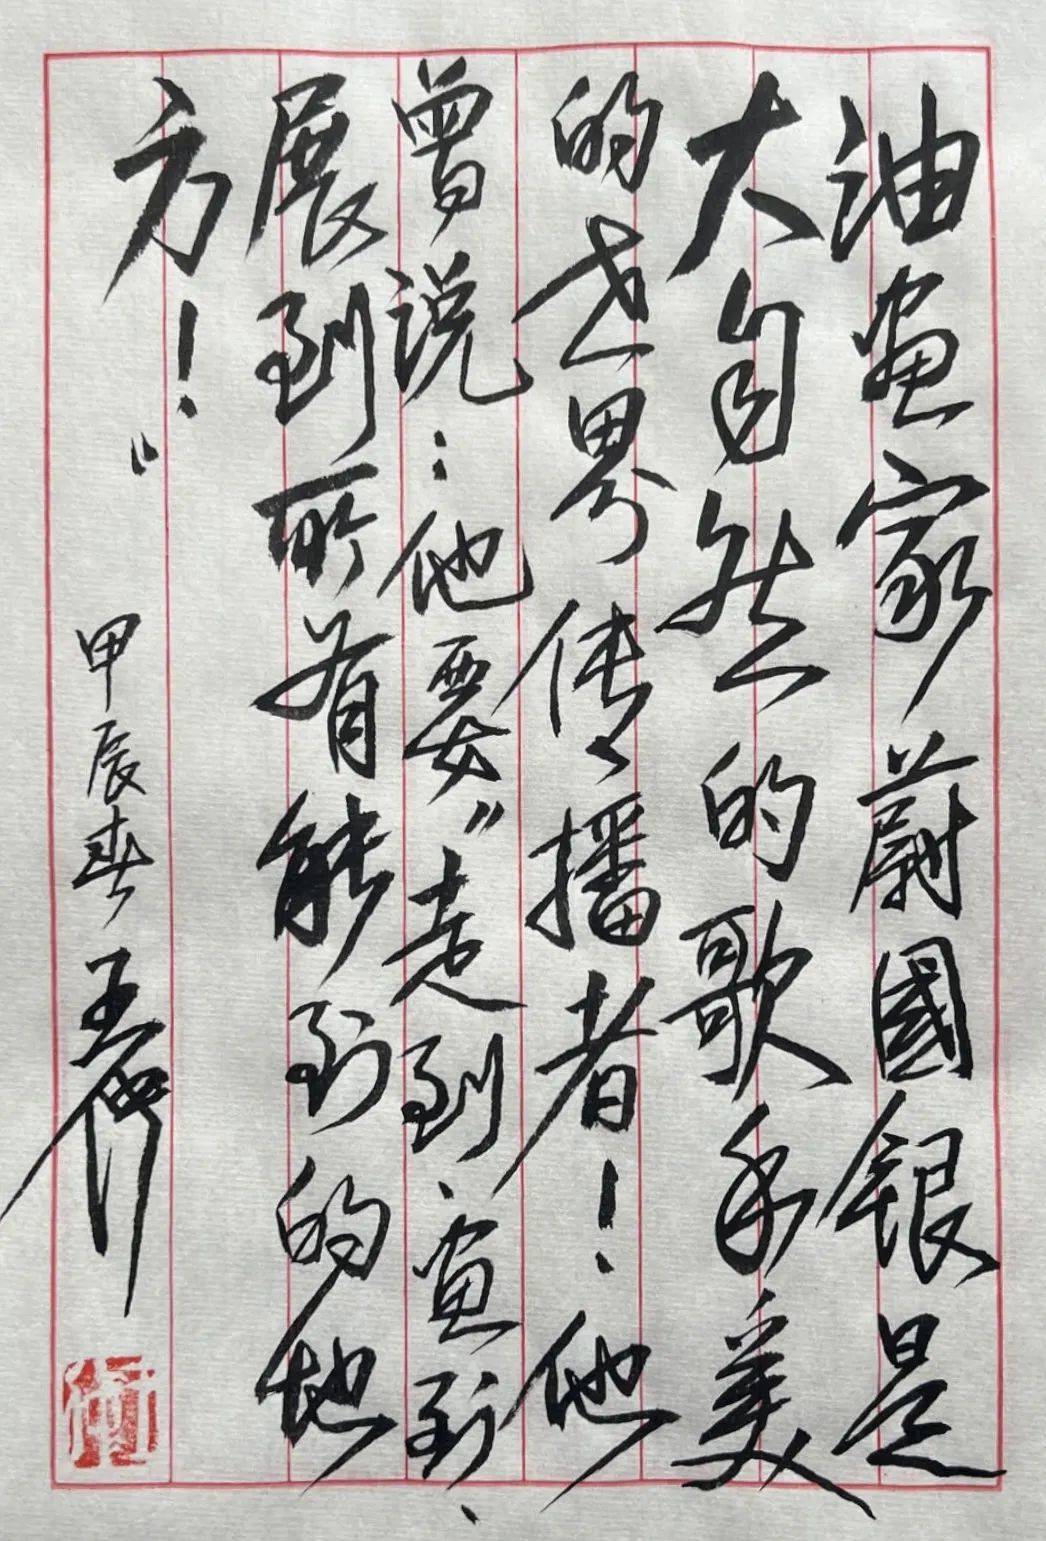 油画家蔚國银是
大自然的歌手美
的世界传播者！他
曾说：他要“走到、画到、
展到所有能到的地
方！”
甲辰春 王衍